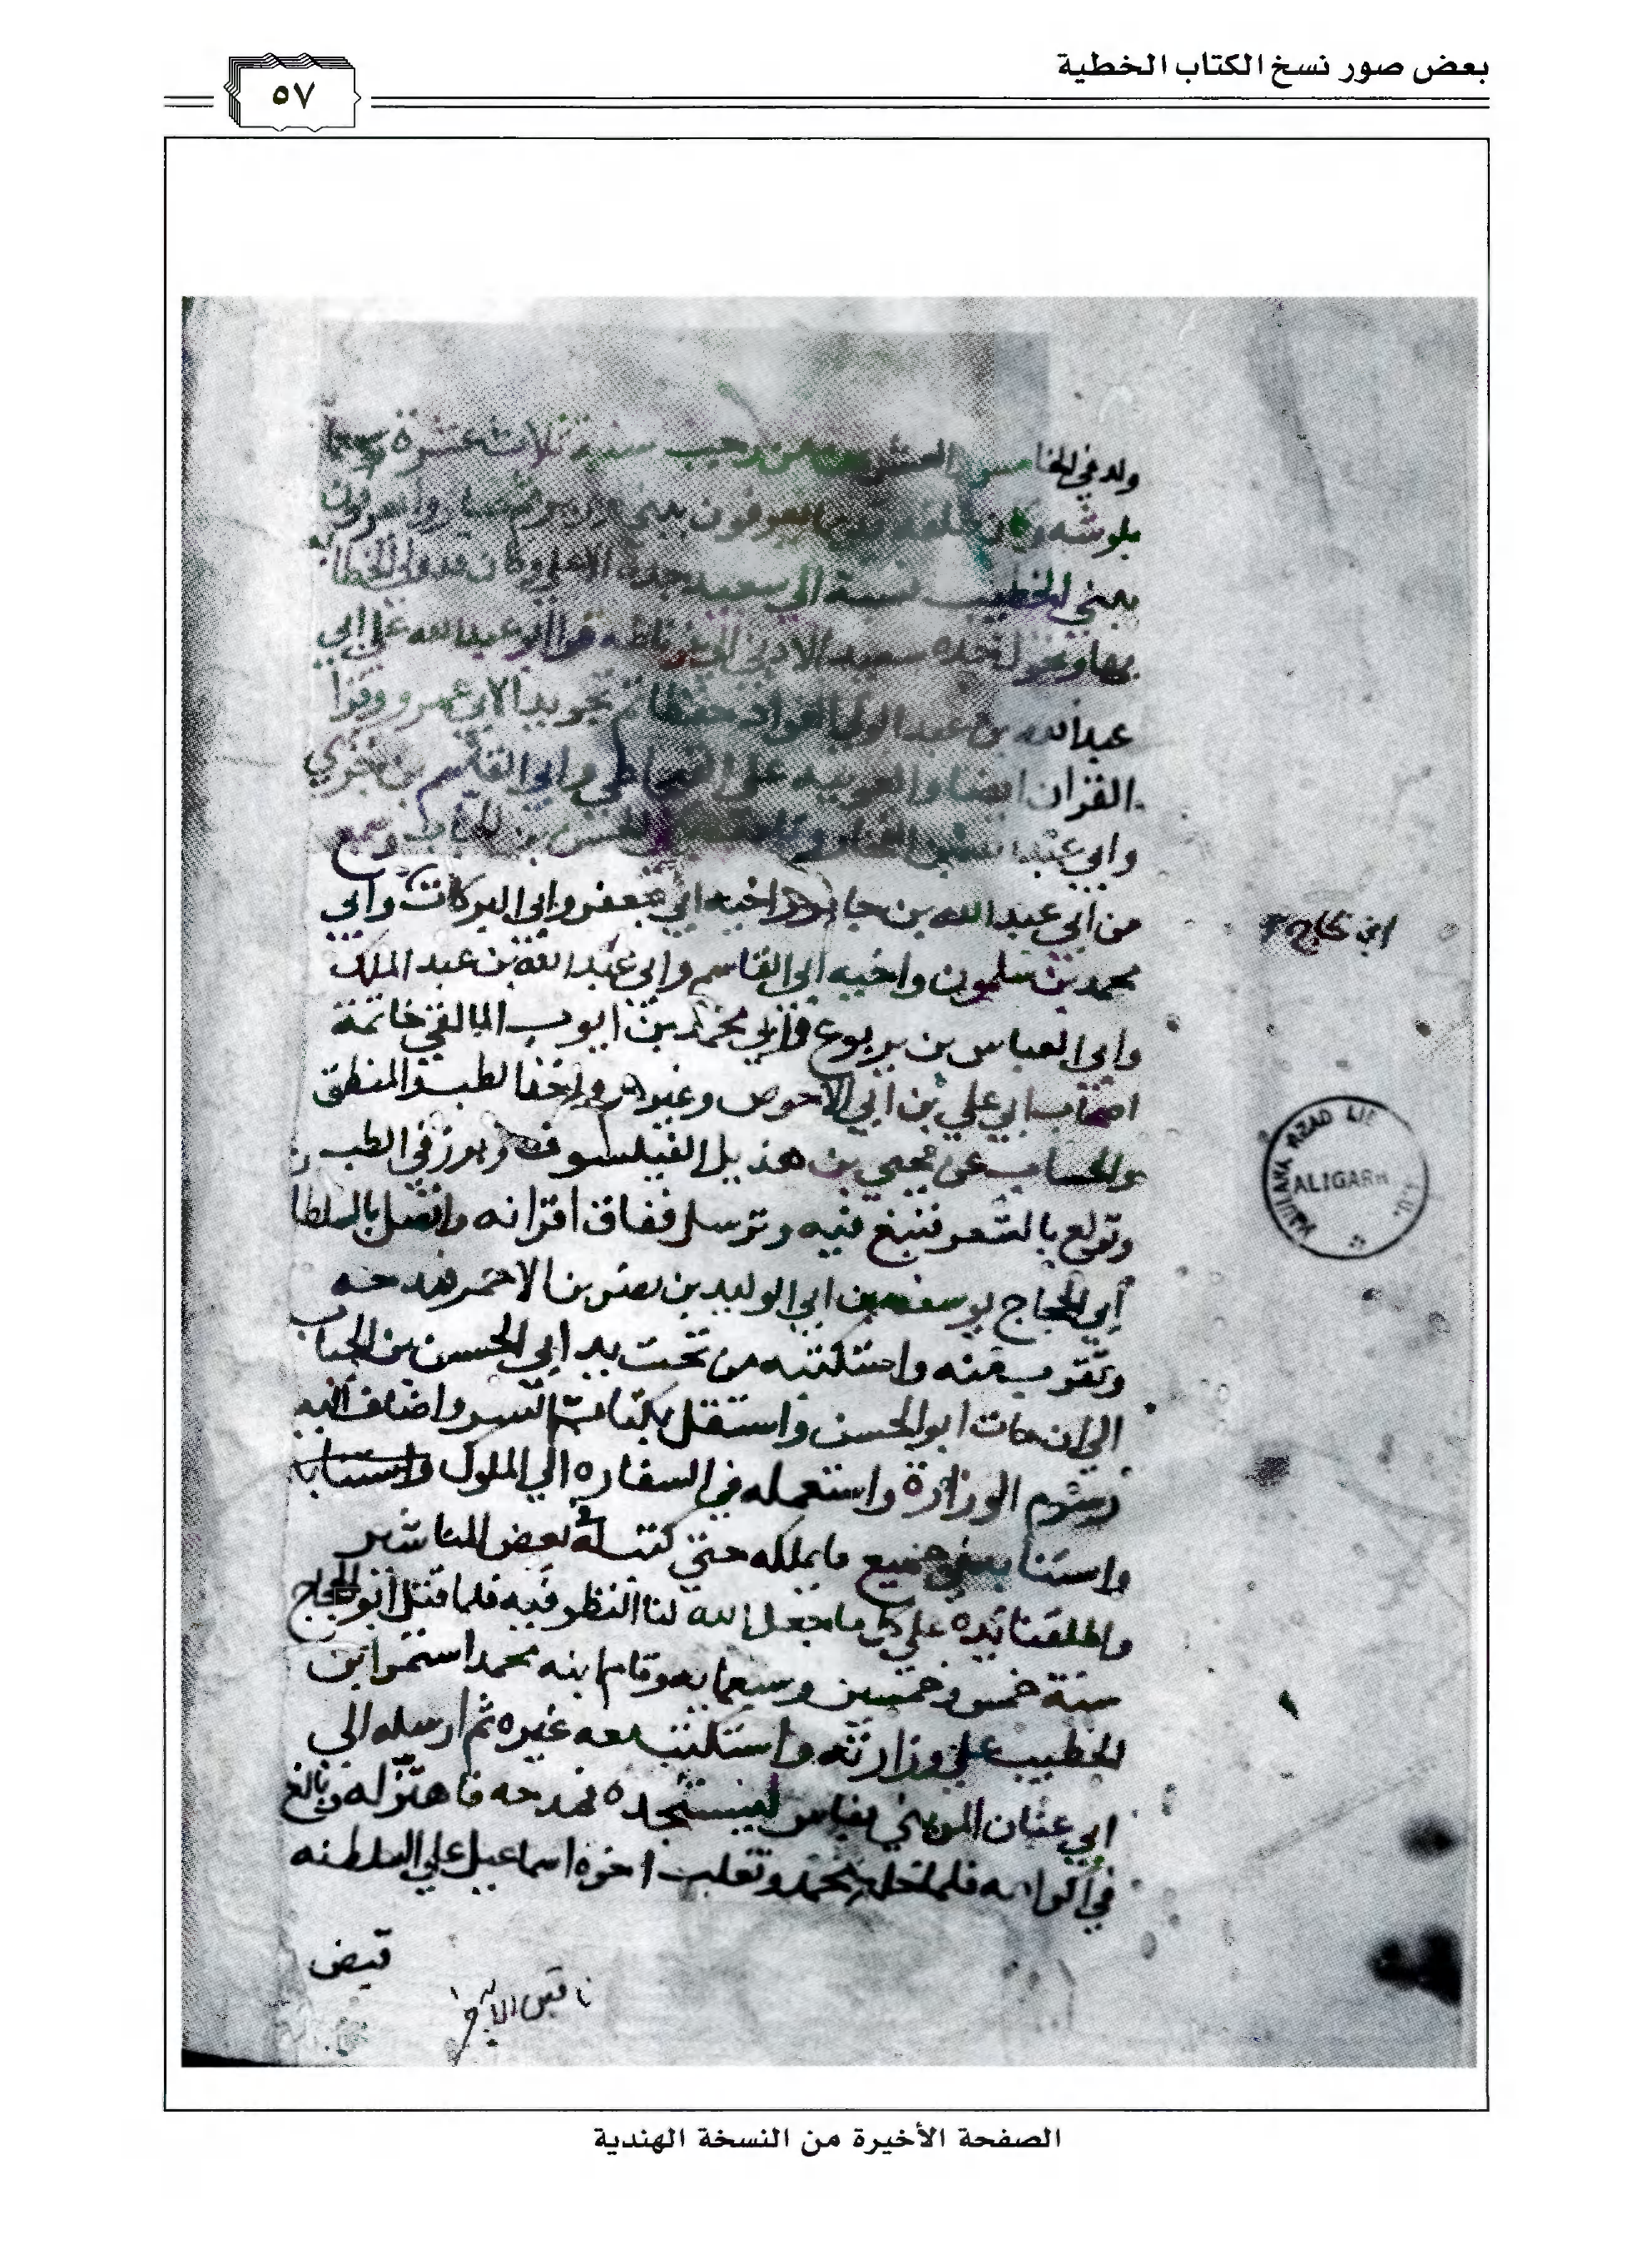 بعض صور نسخ الكتاب الخطية
٥٧
ولد في الخامس والعشرين من رجب سنة ثلاث عشرة وسبعما
بلوشه وكان سلفه قديما يعرفون ببني وزير ثم صاروا يعرفون
ببني الخطيب نسبة الي سعيد جده الاعلي وكان قد ولي الخطا
بها وتحول جده سعيد الادني الي غرناطه قرا ابو عبد الله علي ابي
عبد الله بن عبد الولي حفظا ثم تجويدا لابي عمرو وقرا
القران ايضا والعربيه علي وابي القاسم بن جزي
وابي عبد الحسن بن وسمع
من ابي عبد الله بن جابر واخيه ابي جعفر وابي البركات وابي
محمد بن سلمون واخيه ابي القاسم وابي عبد الله بن عبد الملك
وابي العباس بن يربوع وابي محمد بن ايوب المالقي خاتمة
اصحاب ابي علي بن ابي الاحوص وغيرهم واخذ الطب والمنطق
والحساب عن يحيي بن هذيل الفيلسوف وبرز في الطب
وتولع بالشعر فنبغ فيه وترسل ففاق اقرانه واتصل بالسلطا
ابي الحجاج يوسف بن ابي الوليد بن نصر بن الاحمر فمدحه
وتقرب منه واستكتبه من تحت يد ابي الحسن بن الجياب
الي ان مات ابو الحسن واستقل بكتابة السر واضاف اليه
رسوم الوزارة واستعمله في السفاره الي الملوك واستنابه
جميع ما يملكه حتي كتب له بعض المناشير
واطلقنا يده علي كل ما جعل الله لنا النظر فيه فلما قتل ابو الحجاج
سنة خمس وخمسين وسبعمايه وقام ابنه محمد استمر ابن
الخطيب علي وزارته واستكتب معه غيره ثم ارسله الي
ابي عنان المريني بفاس ليستنجده فمدحه فاهتز له وبالغ
في اكرامه فلما خلع محمد وتغلب اخوه اسماعيل علي السلطنه
قبض
MAULANA AZAD LIB
ALIGARH
الصفحة الأخيرة من النسخة الهندية